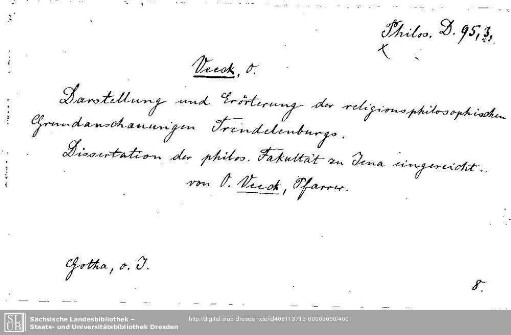 Philos. D. 95,3.
Veeck, O.
Darstellung und Erörterung der religionsphilosophischen
Grundanschauungen Trendelenburgs.
Dissertation der philos. Fakultät zu Jena eingereicht..
von O. Veeck, Pfarrer.
Gotha, o. J.
8.
SLUB
Sächsische Landesbibliothek –
Staats- und Universitätsbibliothek Dresden